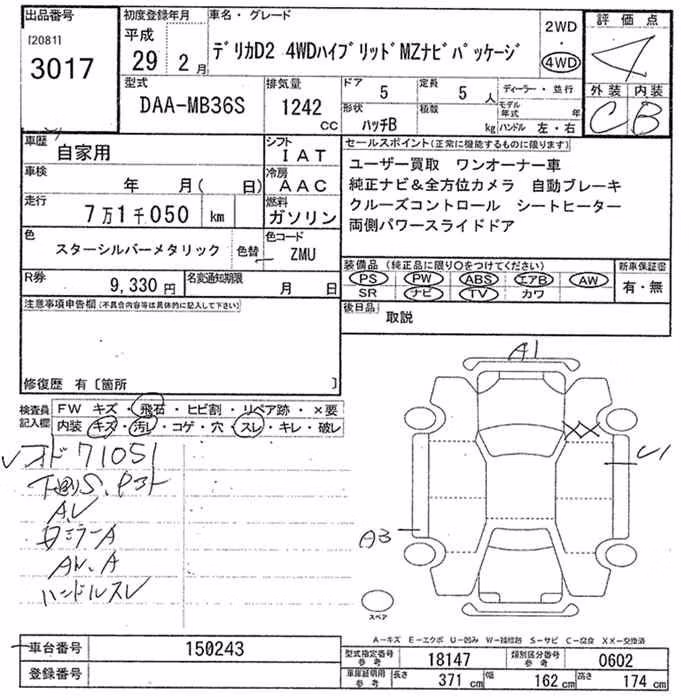 出品番号
[2081]
3017
初度登録年月
平成
29 2月
車名・グレード
デリカD2 4WDハイブリッドMZナビパッケージ
2WD
・
4WD
評価点
4
外装 内装
C B
型式
DAA-MB36S
排気量
1242
CC
ドア
5
定員
5人
形状
ハッチB
積載
kg
ディーラー・並行
モデル年式 年
ハンドル 左・右
車歴
自家用
シフト
IAT
車検
年 月( 日)
冷房
AAC
走行
7万1千050 km
燃料
ガソリン
色
スターシルバーメタリック
色替
色コード
ZMU
R券
9,330円
名変通知期限
月 日
セールスポイント(正常に機能するものに限ります)
ユーザー買取 ワンオーナー車
純正ナビ&全方位カメラ 自動ブレーキ
クルーズコントロール シートヒーター
両側パワースライドドア
装備品(純正品に限り○をつけてください)
PS PW ABS エアB AW
SR ナビ TV カワ
新車保証書
有・無
後日品
取説
注意事項申告欄(不具合内容等は具体的に記入して下さい)
修復歴 有〔箇所 〕
検査員記入欄
FW キズ・飛石・ヒビ割・リペア跡・×要
内装 キズ・汚レ・コゲ・穴・スレ・キレ・破レ
オド71051
下回りS、
A,U
ミラーA
ハンドルスレ
A1
XX
U1
A3
スペア
A-キズ E-エクボ U-凹み W-補修跡 S-サビ C-腐食 XX-交換済
車台番号
150243
登録番号
型式指定番号参考
18147
類別区分番号参考
0602
車庫証明用参考
長さ
371 cm
幅
162 cm
高さ
174 cm